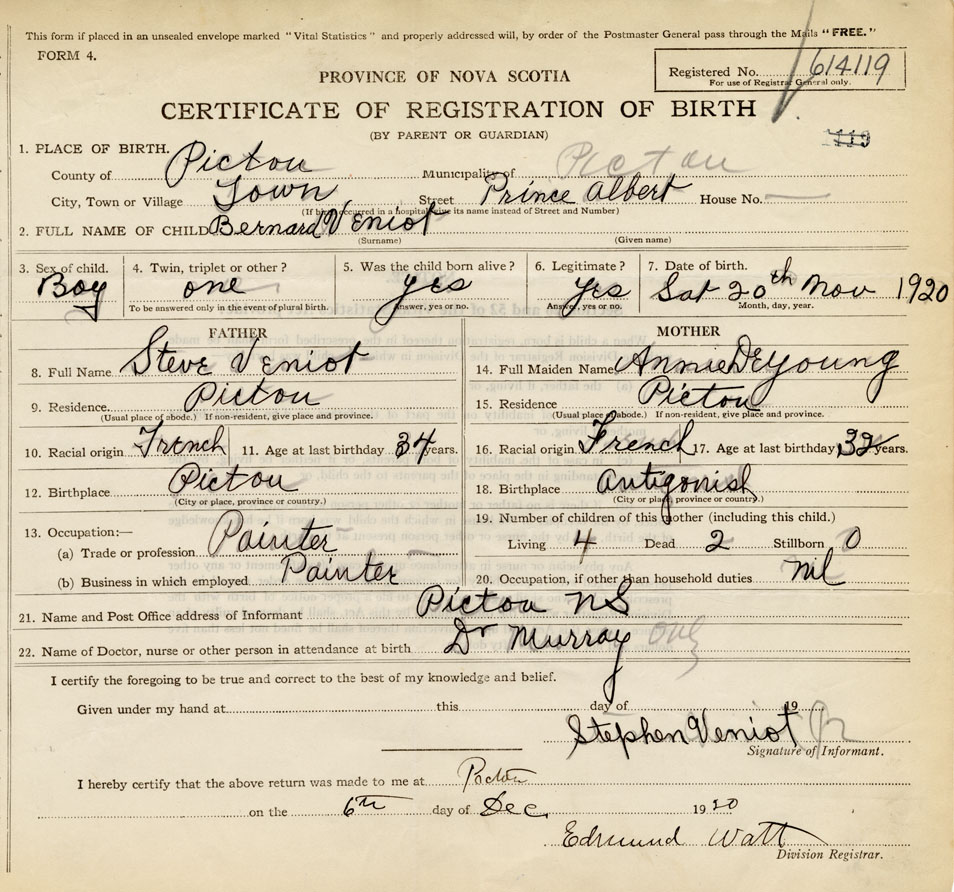 This form if placed in an unsealed envelope marked "Vital Statistics" and properly addressed will, by order of the Postmaster General pass through the Mails "FREE."
FORM 4.
PROVINCE OF NOVA SCOTIA
Registered No. 614119
For use of Registrar General only.
CERTIFICATE OF REGISTRATION OF BIRTH
(BY PARENT OR GUARDIAN)
1. PLACE OF BIRTH.
County of Pictou Municipality of Pictou
City, Town or Village Town Street Prince Albert House No.
(If birth occurred in a hospital give its name instead of Street and Number)
2. FULL NAME OF CHILD Bernard Veniot
(Surname) (Given name)
3. Sex of child. 4. Twin, triplet or other? 5. Was the child born alive? 6. Legitimate? 7. Date of birth.
Boy one yes Yes Sat 20th Nov 1920
To be answered only in the event of plural birth. Answer, yes or no. Answer, yes or no. Month, day, year.
FATHER
8. Full Name Steve Veniot
9. Residence. Pictou
(Usual place of abode.) If non-resident, give place and province.
10. Racial origin French 11. Age at last birthday 34 years.
12. Birthplace Pictou
(City or place, province or country.)
13. Occupation:—
(a) Trade or profession Painter
(b) Business in which employed Painter
MOTHER
14. Full Maiden Name Annie DeYoung
15. Residence Pictou
(Usual place of abode.) If non-resident, give place and province.
16. Racial origin French 17. Age at last birthday, 32 years.
18. Birthplace Antigonish
(City or place, province or country.)
19. Number of children of this mother (including this child.)
Living 4 Dead 2 Stillborn 0
20. Occupation, if other than household duties nil
21. Name and Post Office address of Informant Pictou NS
22. Name of Doctor, nurse or other person in attendance at birth Dr Murray
I certify the foregoing to be true and correct to the best of my knowledge and belief.
Given under my hand at this day of 19
Stephen Veniot
Signature of Informant.
I hereby certify that the above return was made to me at Pictou
on the 6th day of Dec 1920
Edmund Watt
Division Registrar.